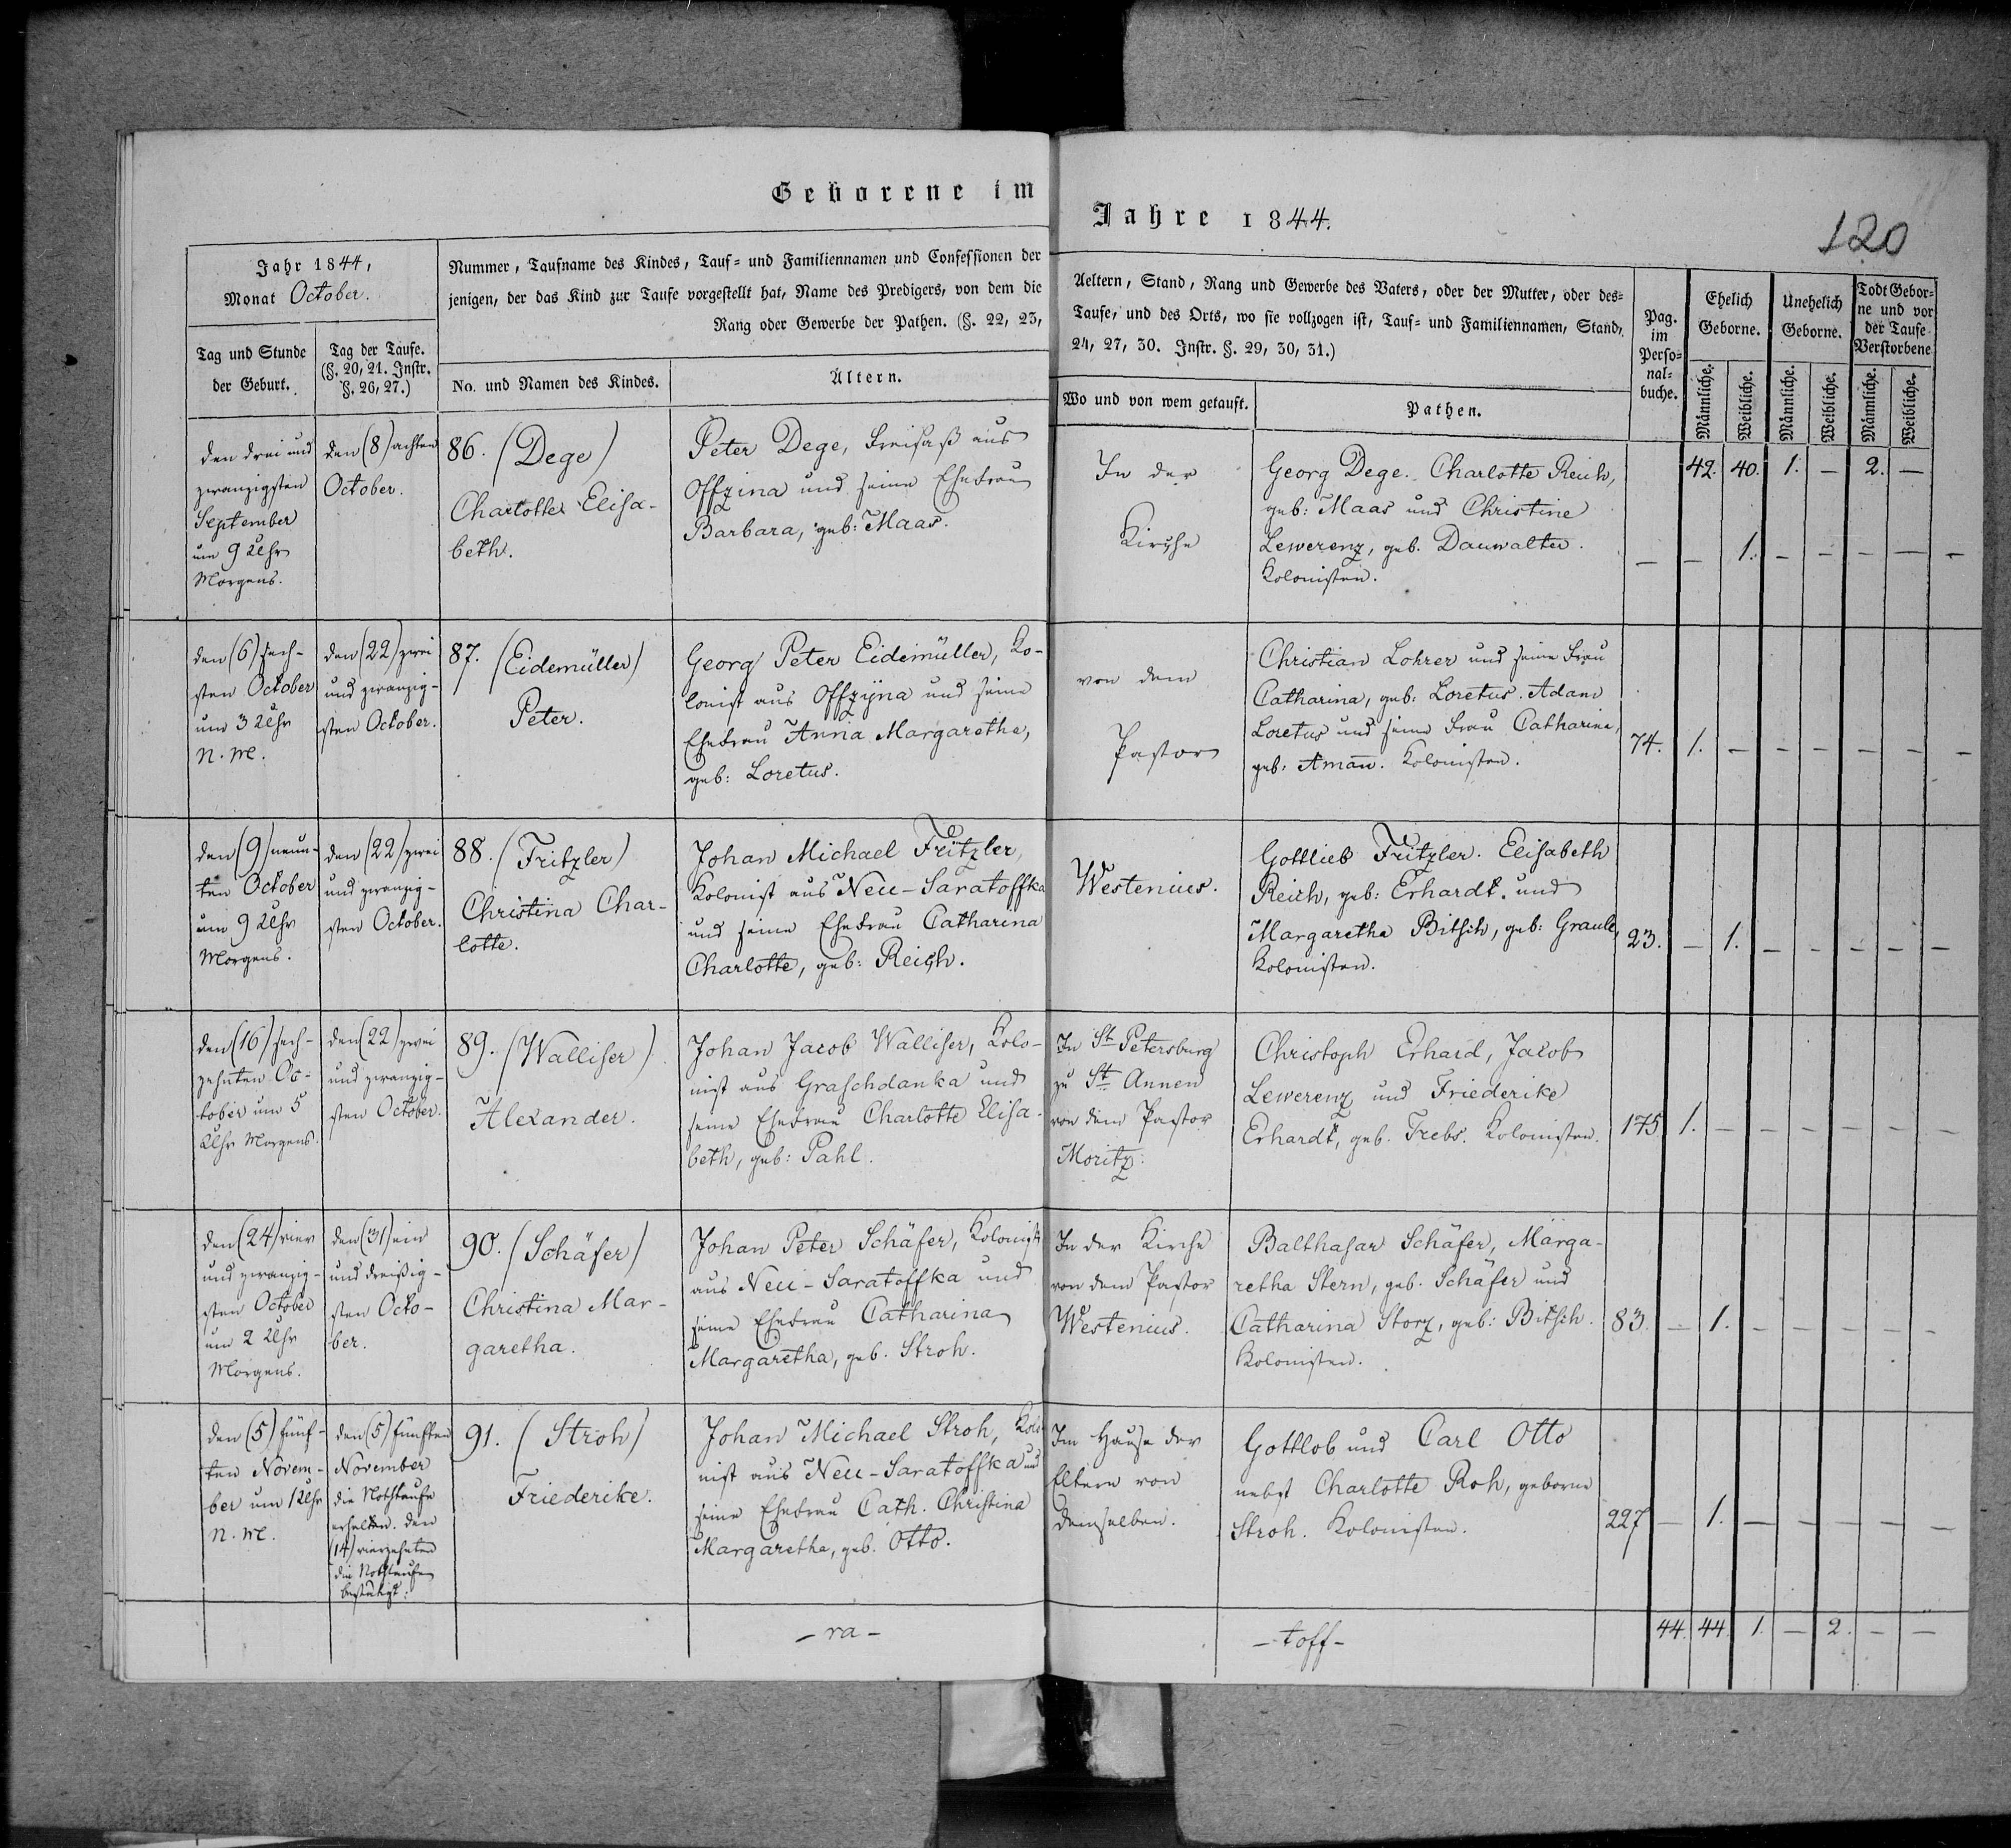 Geborene im
Jahre 1844.
120
Jahr 1844,
Monat October.
Nummer, Taufname des Kindes, Tauf- und Familiennamen und Confessionen der
jenigen, der das Kind zur Taufe vorgestellt hat, Name des Predigers, von dem die
Rang oder Gewerbe der Pathen. (§. 22, 23,
Aeltern, Stand, Rang und Gewerbe des Vaters, oder der Mutter, oder des-
Taufe, und des Orts, wo sie vollzogen ist, Tauf- und Familiennamen, Stand,
24, 27, 30. Instr. §. 29, 30, 31.)
Tag und Stunde
der Geburt.
Tag der Taufe.
(§. 20, 21. Instr.
§. 26, 27.)
No. und Namen des Kindes.
Ältern.
Wo und von wem getauft.
Pathen.
Pag.
im
Perso-
nal-
buche.
Ehelich
Geborne.
Unehelich
Geborne.
Todt Gebor-
ne und vor
der Taufe
Verstorbene
Männliche.
Weibliche.
Männliche.
Weibliche.
Männliche.
Weibliche.
den drei und
zwanzigsten
September
um 9 Uhr
Morgens.
den (8) achten
October.
86. (Dege)
Charlotte Elisa-
beth.
Peter Dege, Freisaß aus
Offzina und seine Ehefrau
Barbara, geb: Maas.
In der
Kirche
Georg Dege. Charlotte Reich,
geb: Maas und Christine
Lewerenz, geb. Dauwalter.
Kolonisten.
42. 40. 1. — 2. —
— — 1. — — — — —
den (6) sech-
sten October
um 3 Uhr
N. M.
den (22) zwei
und zwanzig-
sten October.
87. (Eidemüller)
Peter.
Georg Peter Eidemüller, Ko-
lonist aus Offzÿna und seine
Ehefrau Anna Margaretha,
geb: Loretus.
von dem
Pastor
Christian Lohrer und seine Frau
Catharina, geb: Loretus. Adam
Loretus und seine Frau Catharina,
geb: Aman̄. Kolonisten.
74. 1. — — — — — —
den (9) neun-
ten October
um 9 Uhr
Morgens.
den (22) zwei
und zwanzig-
sten October.
88. (Fritzler)
Christina Char-
lotte.
Johan Michael Fritzler,
Kolonist aus Neu-Saratoffka
und seine Ehefrau Catharina
Charlotte, geb: Reich.
Westenius.
Gottlieb Fritzler. Elisabeth
Reich, geb: Erhardt. und
Margaretha Bitsch, geb: Graule,
Kolonisten.
23. — 1. — — — — —
den (16) sech-
zehnten Oc-
tober um 5
Uhr Morgens.
den (22) zwei
und zwanzig-
sten October.
89. (Walliser)
Alexander.
Johan Jacob Walliser, Kolo-
nist aus Graschdanka und
seine Ehefrau Charlotte Elisa-
beth, geb: Pahl.
In St Petersburg
zu St. Annen
von dem Pastor
Moritz.
Christoph Erhard, Jacob
Lewerenz und Friederike
Erhardt, geb. Trebs. Kolonisten.
175 1. — — — — — —
den (24) vier
und zwanzig-
sten October
um 2 Uhr
Morgens.
den (31) ein
und dreißig-
sten Octo-
ber.
90. (Schäfer)
Christina Mar-
garetha.
Johan Peter Schäfer, Kolonist
aus Neu-Saratoffka und
seine Ehefrau Catharina
Margaretha, geb. Stroh.
In der Kirche
von dem Pastor
Westenius.
Balthasar Schäfer, Marga-
retha Stern, geb. Schäfer und
Catharina Storz, geb: Bitsch.
Kolonisten.
83. — 1. — — — — —
den (5) fünf-
ten Novem-
ber um 1 Uhr
N. M.
den (5) fünften
November
die Nothtaufe
erhalten. den
(14) vierzehnten
die Nothtaufe
bestätigt.
91. (Stroh)
Friederike.
Johan Michael Stroh, Kolo-
nist aus Neu-Saratoffka und
seine Ehefrau Cath. Christina
Margaretha, geb. Otto.
Im Hause der
Eltern von
demselben.
Gottlob und Carl Otto
nebst Charlotte Roh, geborne
Stroh. Kolonisten.
227 — 1. — — — — —
- ra -
- toff -
44. 44. 1. — 2. — —